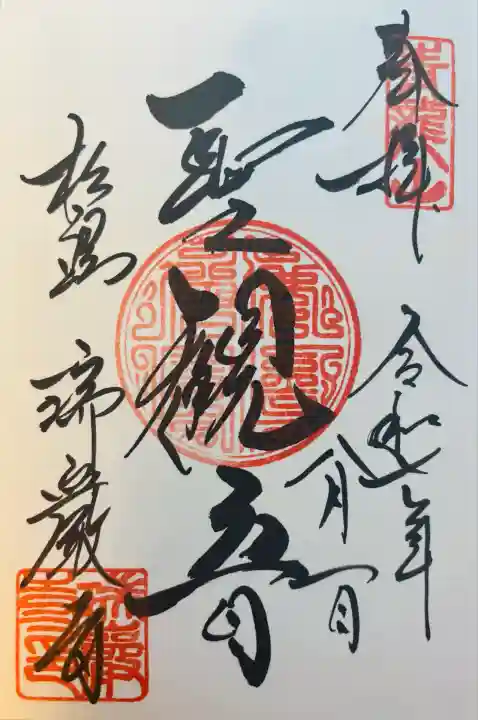 奉拝
令和七年
八月一日
聖観音
松島
瑞巌寺